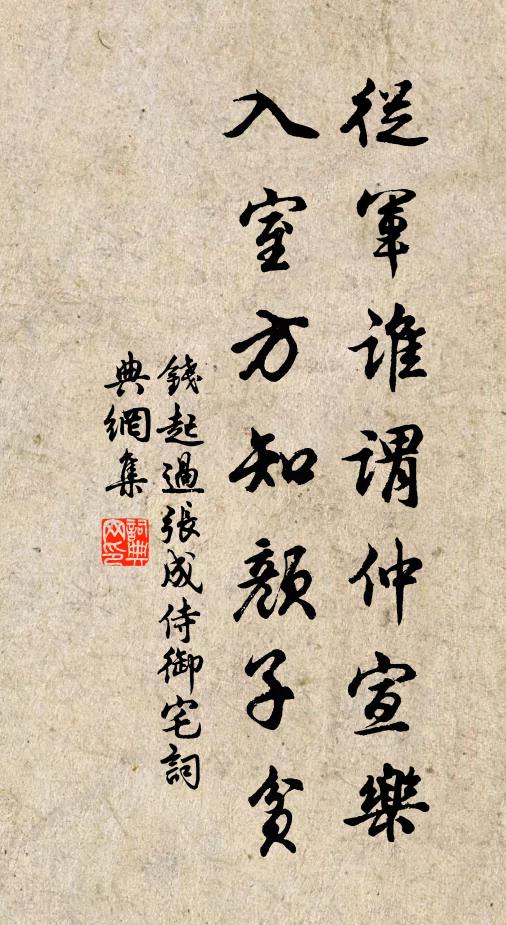 從軍誰謂仲宣樂
入室方知顏子貧
錢起過張成侍御宅詞
典網集
詞典
网印